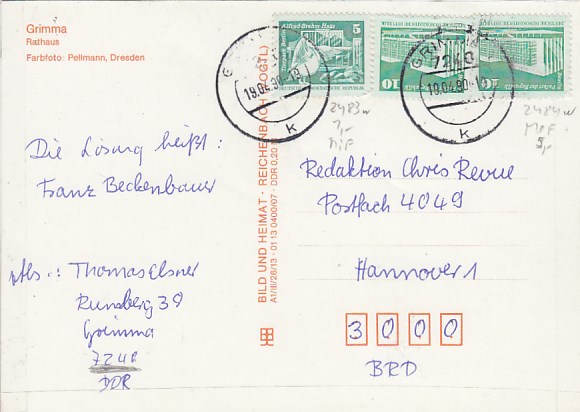 Grimma
Rathaus
Farbfoto: Pellmann, Dresden
Die Lösung heißt:
Franz Beckenbauer
Abs.: Thomas Elsner
Runsberg 39
Grimma
7240
DDR
BILD UND HEIMAT · REICHENBACH (VOGTL)
A1/III/26/13 · 01 13 0400/07 · DDR 0,20 M
Alfred-Brehm-Haus
5
10
10
GRIMMA
19.04.90-19
k
GRIMMA
7240
19.04.90-19
k
2483w
MiF
2484w
MeF
5,-
Redaktion Chris Revue
Postfach 4049
Hannover 1
3000
BRD